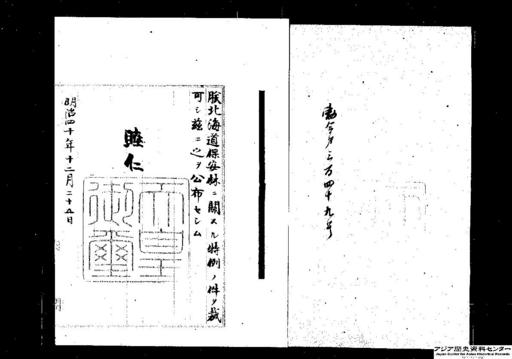 勅令第三百四十九号
朕北海道保安林ニ関スル特例ノ件ヲ裁
可シ茲ニ之ヲ公布セシム
睦仁
天皇御璽
明治四十年十二月二十五日
アジア歴史資料センター
Japan Center for Asian Historical Records